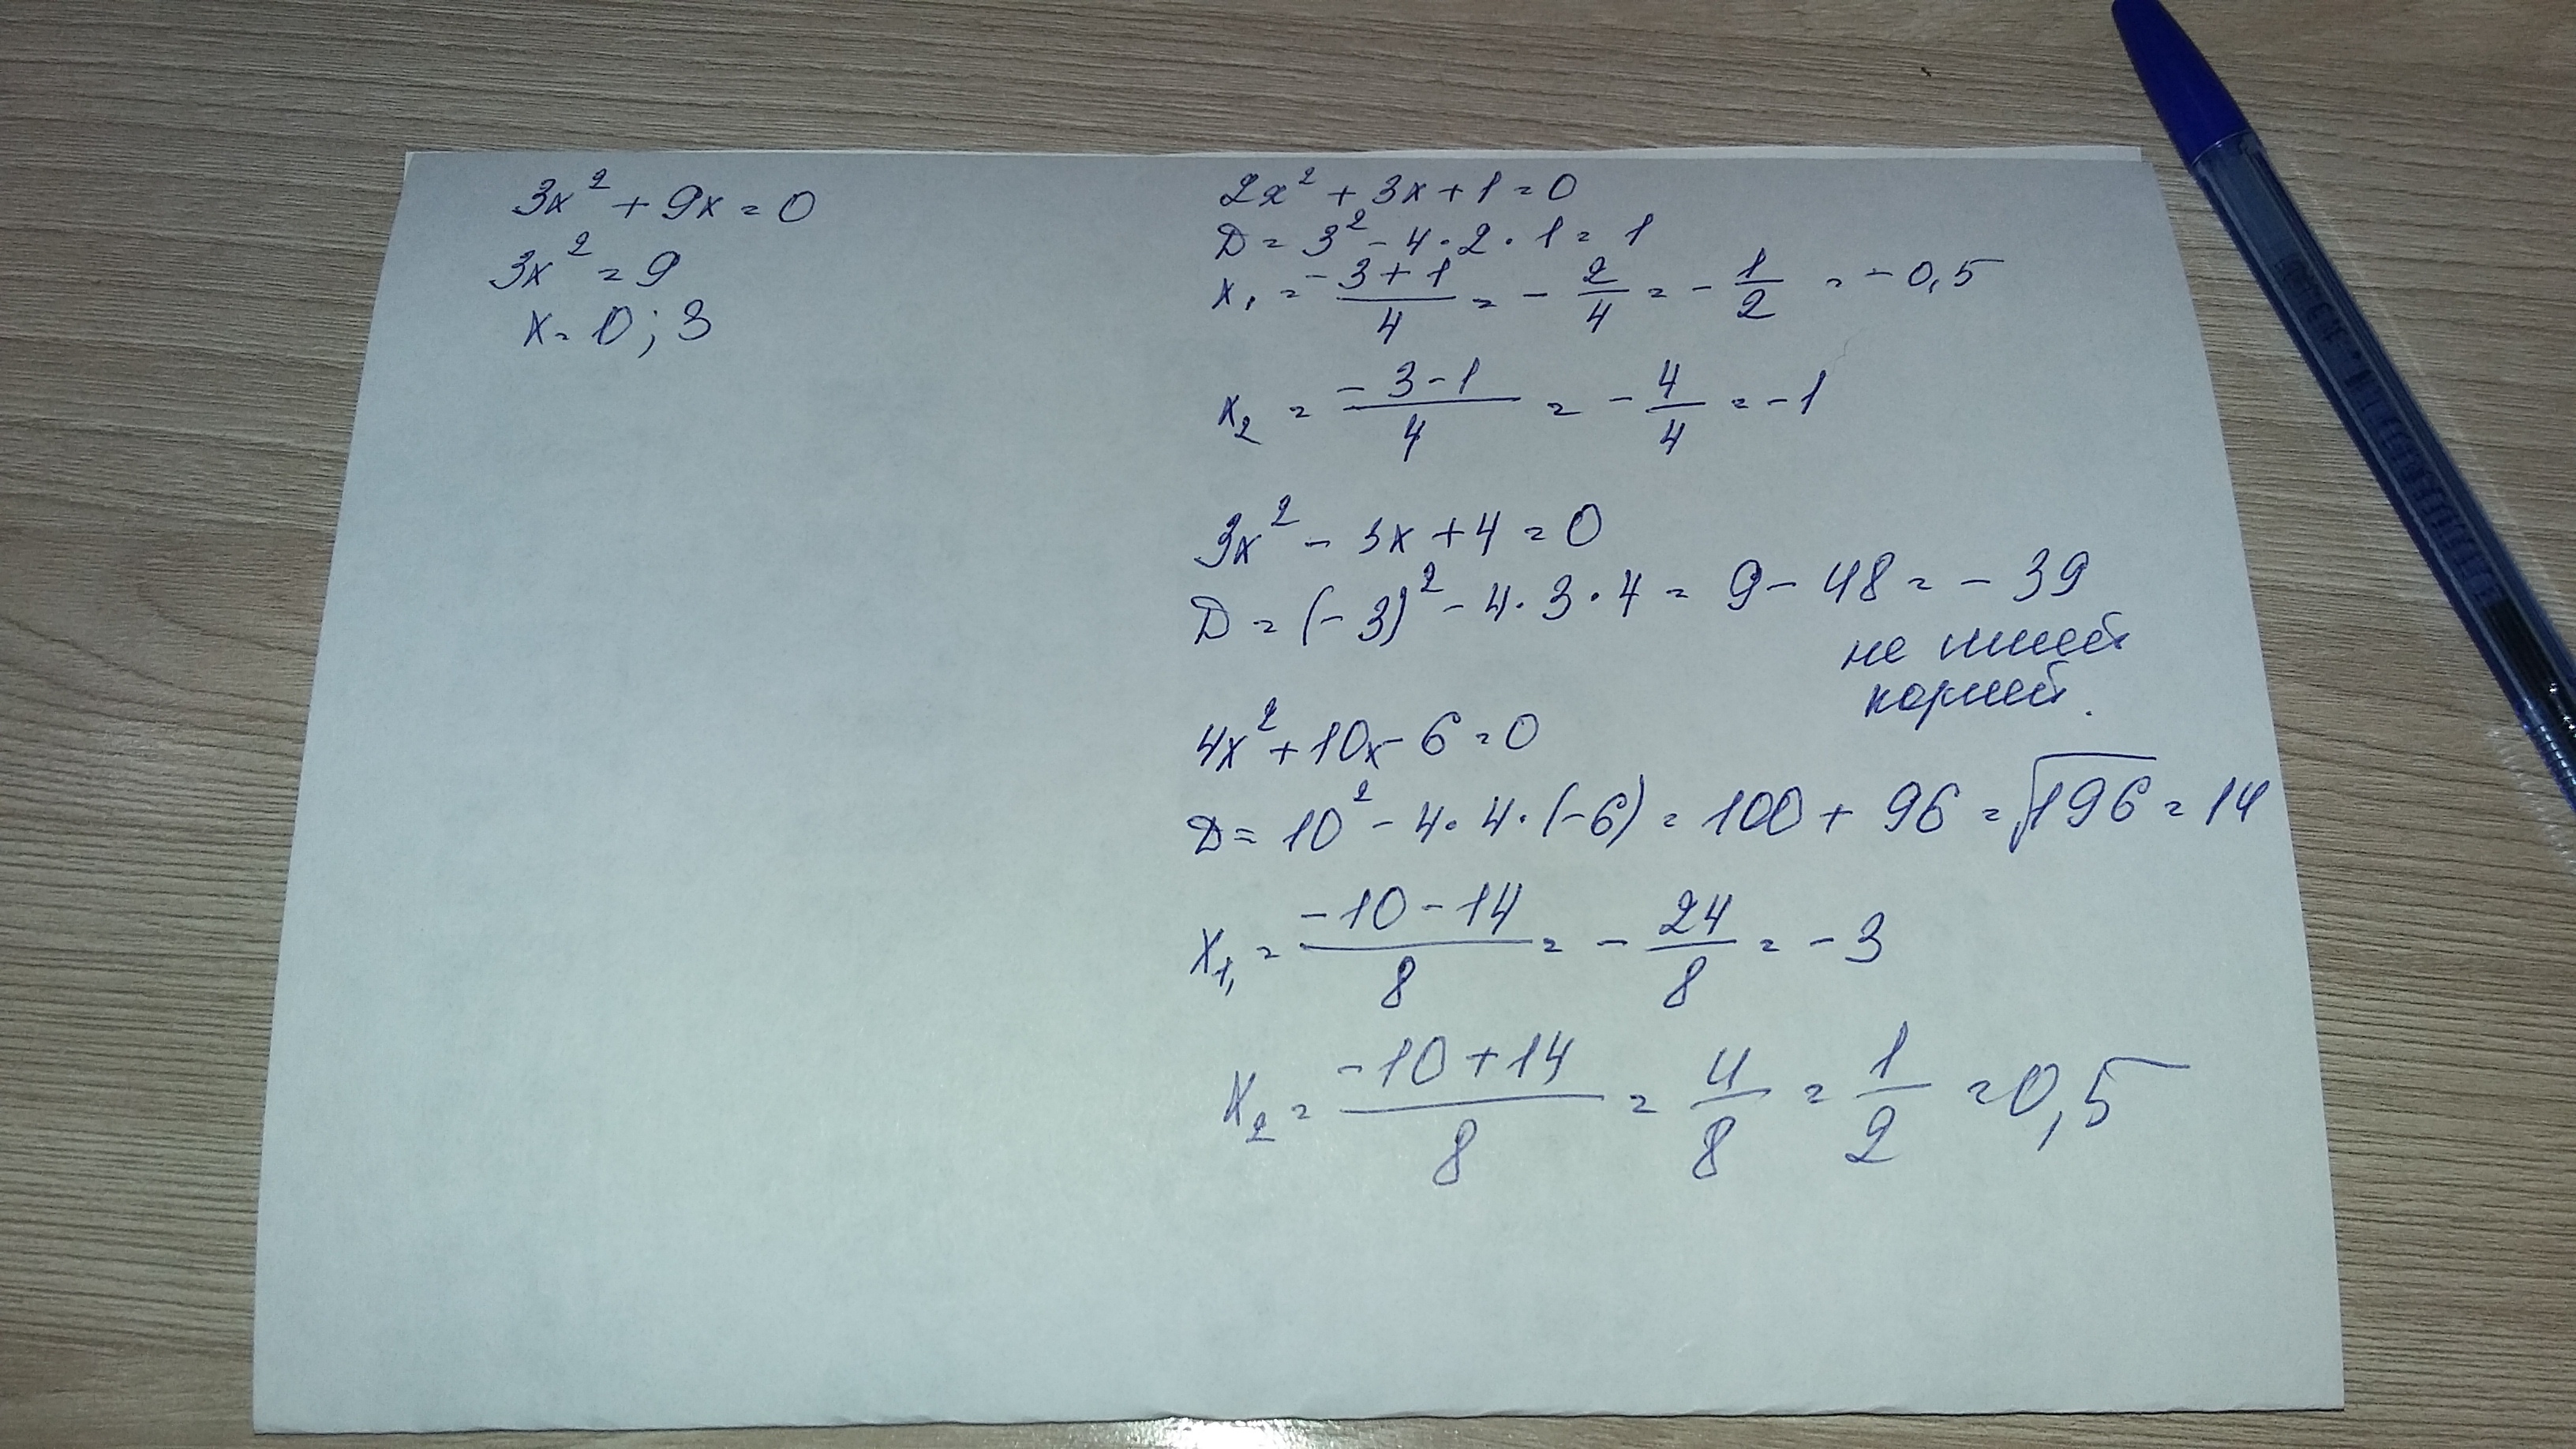 3x² + 9x = 0
3x² = 9
x = 0; 3
2x² + 3x + 1 = 0
D = 3² - 4 · 2 · 1 = 1
x₁ = (-3 + 1)/4 = - 2/4 = - 1/2 = - 0,5
x₂ = (-3 - 1)/4 = - 4/4 = - 1
3x² - 3x + 4 = 0
D = (-3)² - 4 · 3 · 4 = 9 - 48 = - 39
не имеет
корней.
4x² + 10x - 6 = 0
D = 10² - 4 · 4 · (-6) = 100 + 96 = √196 = 14
x₁, = (-10 - 14)/8 = - 24/8 = - 3
x₂ = (-10 + 14)/8 = 4/8 = 1/2 = 0,5